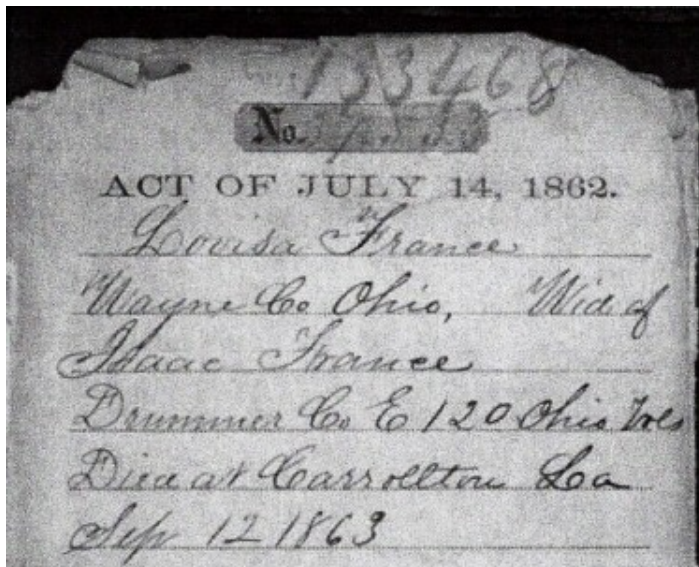 133468
No.
ACT OF JULY 14, 1862.
Lovisa France
Wayne Co Ohio, Wid of
Isaac France
Drummer Co E 120 Ohio Vols
Died at Carrollton La
Sep 12 1863